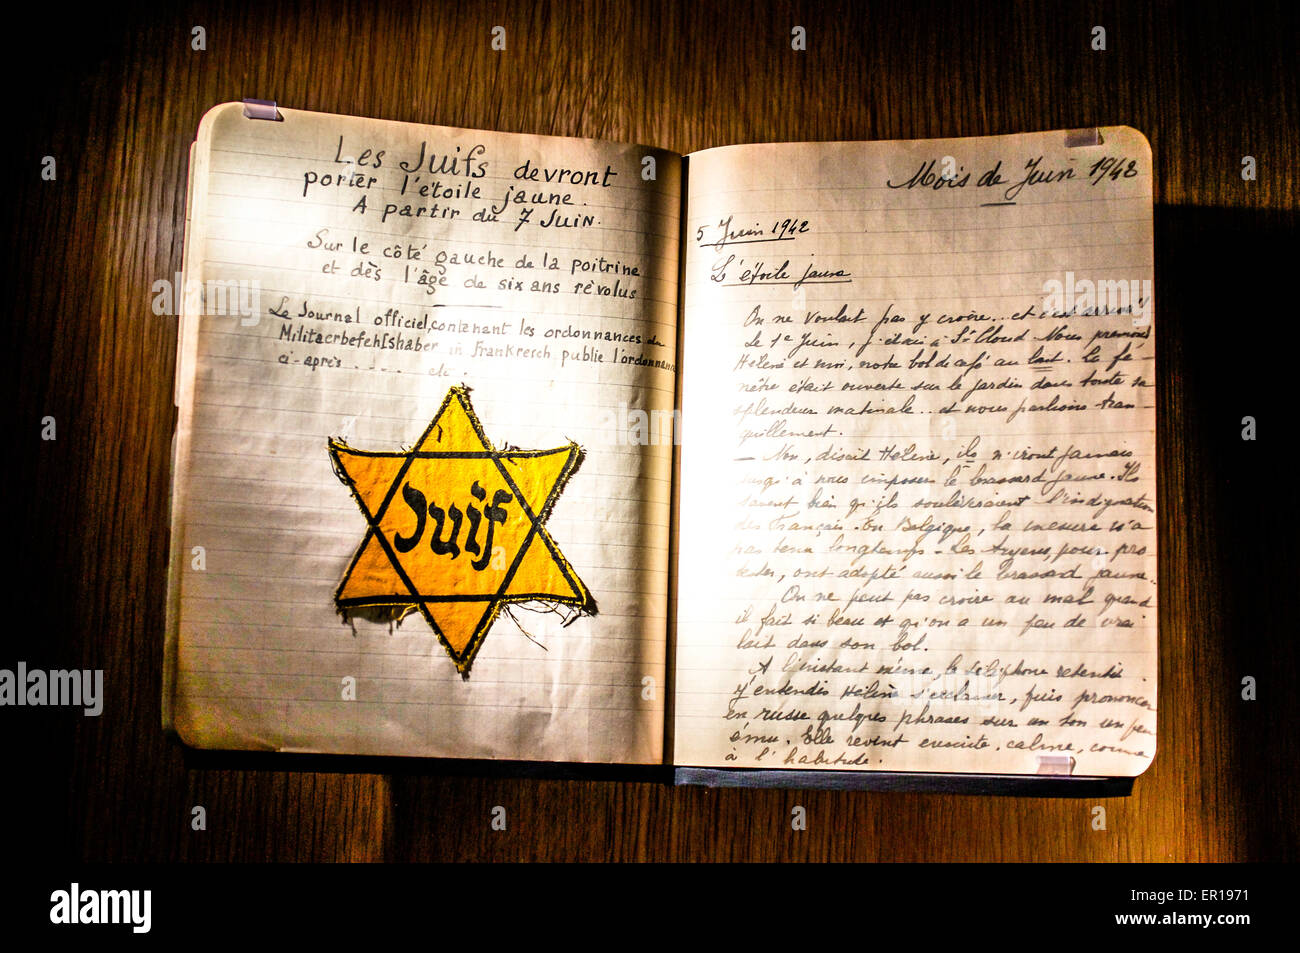 Les Juifs devront
porter l'étoile jaune.
A partir du 7 Juin.
Sur le côté gauche de la poitrine
et dès l'âge de six ans révolus
Le Journal officiel, contenant les ordonnances du
Militaerbefehlshaber in Frankreich publie l'ordonnance
ci-après .... etc.
Juif
Mois de Juin 1942
5 Juin 1942
L'étoile jaune
On ne voulait pas y croire... et c'est arrivé!
Le 1er Juin, j'étais à St Cloud. Nous prenions
Hélène et moi, notre bol de café au lait. La fé-
nêtre était ouverte sur le jardin dans toute sa
splendeur matinale.. et nous parlions tran-
quillement.
— Non, disait Hélène, ils n'iront jamais
jusqu'à nous imposer le brassard jaune. Ils
savent bien qu'ils soulèveraient l'indignation
des Français. En Belgique, la mesure n'a
pas tenu longtemps. Les Aryens, pour pro-
tester, ont adopté aussi le brassard jaune.
On ne peut pas croire au mal quand
il fait si beau et qu'on a un peu de vrai
lait dans son bol.
A l'instant même, le téléphone retentit.
J'entendis Hélène s'exclamer, puis prononcer
en russe quelques phrases sur un ton un peu
ému. Elle revint ensuite, calme, comme
à l'habitude.
a alamy
alamy
Image ID: ER1971
www.alamy.com